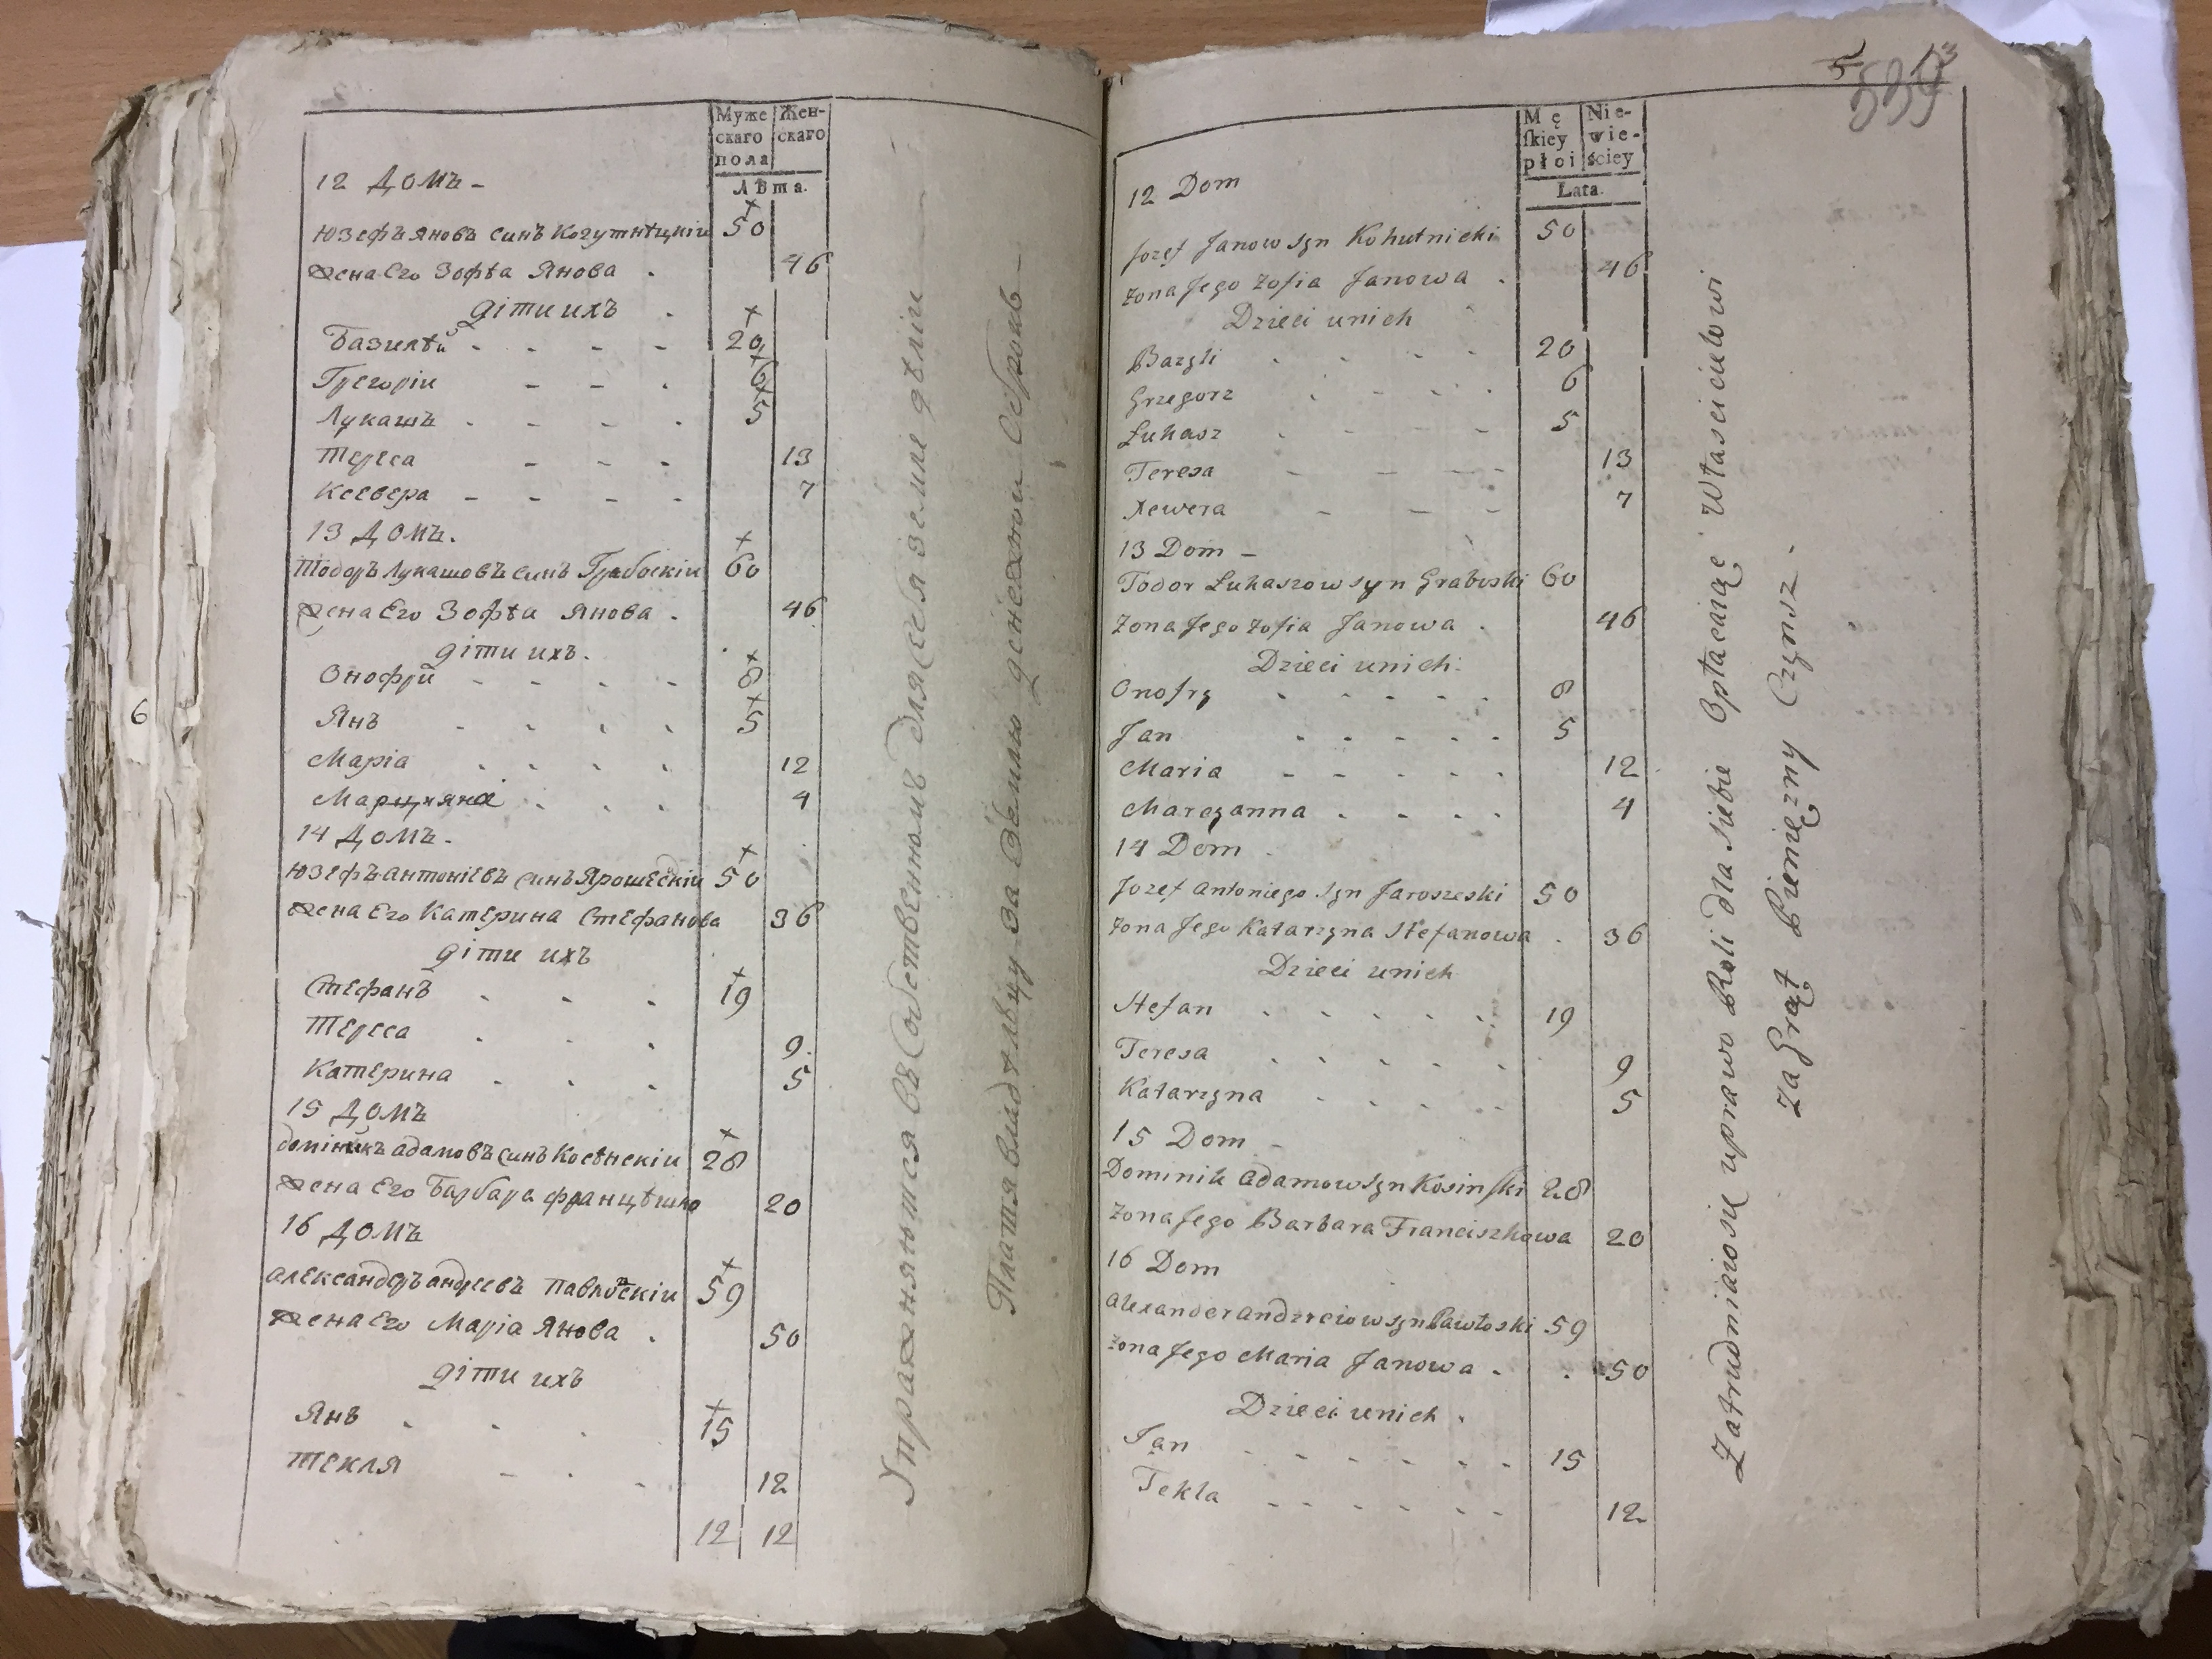 Муже
скаго
пола
Жен-
скаго
Лѣта.
12 Домъ -
Юзефъ Яновъ синъ Когутнѣцкій 50
Жена Его Зофѣа Янова . 46
діти ихъ .
Базилѣй - - - - 20
Грегорій - - . 6
Лукашъ . - - . 5
Тереса - - - 13
Ксевера - - - - 7
13 Домъ.
Тодоръ Лукашовъ синъ Грабоскій 60
Жена Его Зофѣа Янова . 46
діти ихъ.
Онофрій - - - - 8
Янъ . . . . 5
Маріа . . . . 12
Марцияна . . . 4
14 Домъ.
Юзефъ Антоніевъ синъ Ярошескій 50
Жена Его Катерина Стефанова 36
діти ихъ
Стефанъ . . . 19
Тереса . . . 9.
Катерина . . . 5
15 Домъ
Домінікъ Адамовъ синъ Косѣнскій 28
Жена Его Барбара 20
16 Домъ
Александеръ Андреевъ Павлоскій 59
Жена Его Маріа Янова . 50
діти ихъ
Янъ . . . 15
Текля - . . 12
12 12
Упражняются въ Собственномъ для Себя земле дѣліи
Платя владѣльцу за Землю денежной Оброкъ -
6
5
13
539
Mę
ſkiey
płci
Nie-
wie-
ściey
Lata.
12 Dom
Jozef Janow syn Kohutnicki 50
Zona Jego Zofia Janowa . 46
Dzieci unich
Bazyli . . - - 20
Grzegorz . . . . 6
Łukasz . - - - 5
Teresa - - - - 13
Xewera - - - 7
13 Dom -
Todor Łukaszow syn Graboski 60
Zona Jego Zofia Janowa . 46
Dzieci unich.
Onofry . . . . . 8
Jan . . . . . 5
Maria - - - - . 12
Marcyanna . . . . 4
14 Dom .
Jozef Antoniego syn Jaroszeski 50
Zona Jego Katarzyna Stefanowa . 36
Dzieci unich
Stefan . . . . . 19
Teresa . . . . . 9
Katarzyna . . . . 5
15 Dom -
Dominik Adamow syn Kosinſki 28
Zona Jego Barbara Franciszkowa 20
16 Dom
Alexander Andrzeiow syn Pawłoski 59
Zona Jego Maria Janowa . . 50
Dzieci unich .
Jan . . . . . . 15
Tekla . . . . . . 12
Zatrudniaiosię uprawo Roli dla siebie Opłacaiąc Własciciełowi
Za Grąt Pieniężny Czynsz -